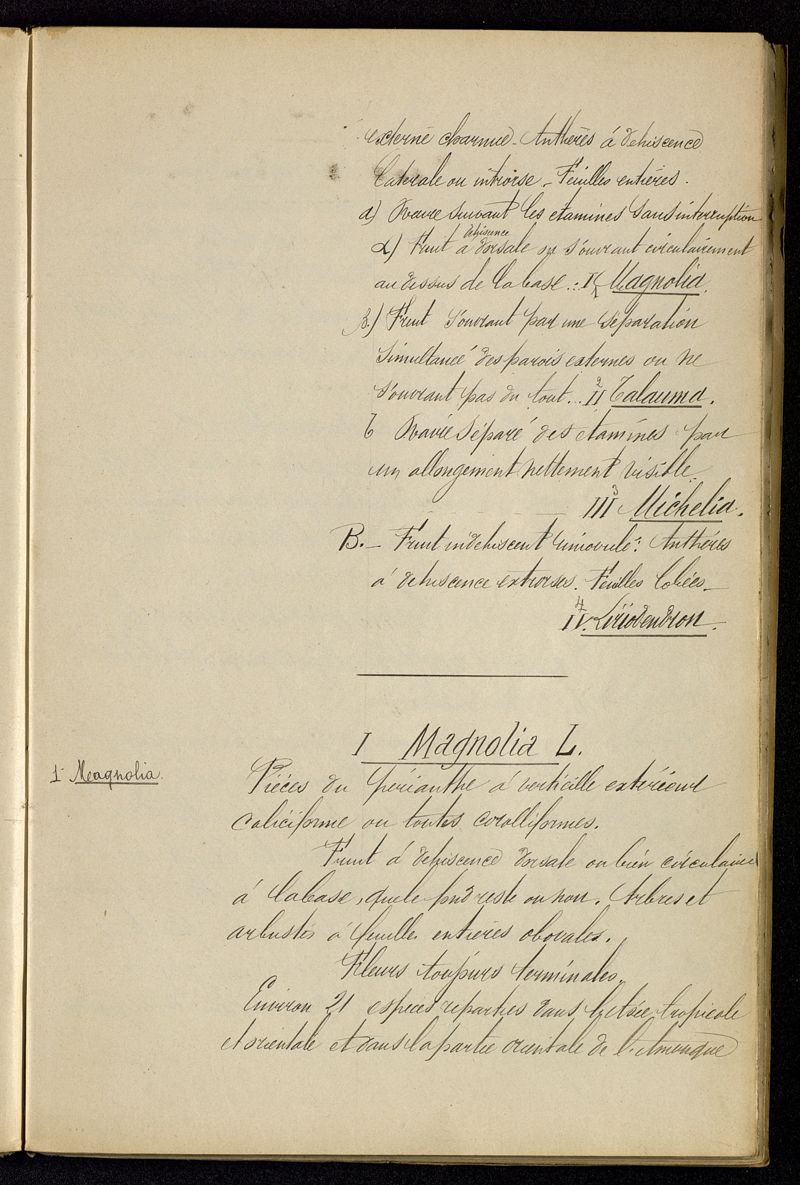 externe charnue - Anthères à dehiscence
laterale ou introrse - Feuilles entières.
a) Ovaire suivant les etamines sans interruption
α) Fruit à dehiscence dorsale ou s'ouvrant circulairement
au dessus de la base... I Magnolia.
β.) Fruit s'ouvrant par une séparation
simultaneé des parois externes ou ne
s'ouvrant pas du tout... 2 II Talauma.
b Ovaire séparé des etamines par
un allongement nettement visible
III 3 Michelia.
B. - Fruit indehiscent uniovulé: Anthéres
à dehiscence extrorses. Feuilles lobées -
4 IV. Liriodendron.
I Magnolia L.
1- Magnolia.
Piéces du périanthe à verticille extérieur
caliciforme ou toutes corolliformes.
Fruit á dehiscence dorsale ou bien circulaire
á la base, que le reste ou non. Arbres et
arbustes à feuilles entieres obovales.
Fleurs toujours terminales.
Environ 21 espèces reparties dans l'Asie tropicale
et orientale et dans la partie orientale de l'Amerique